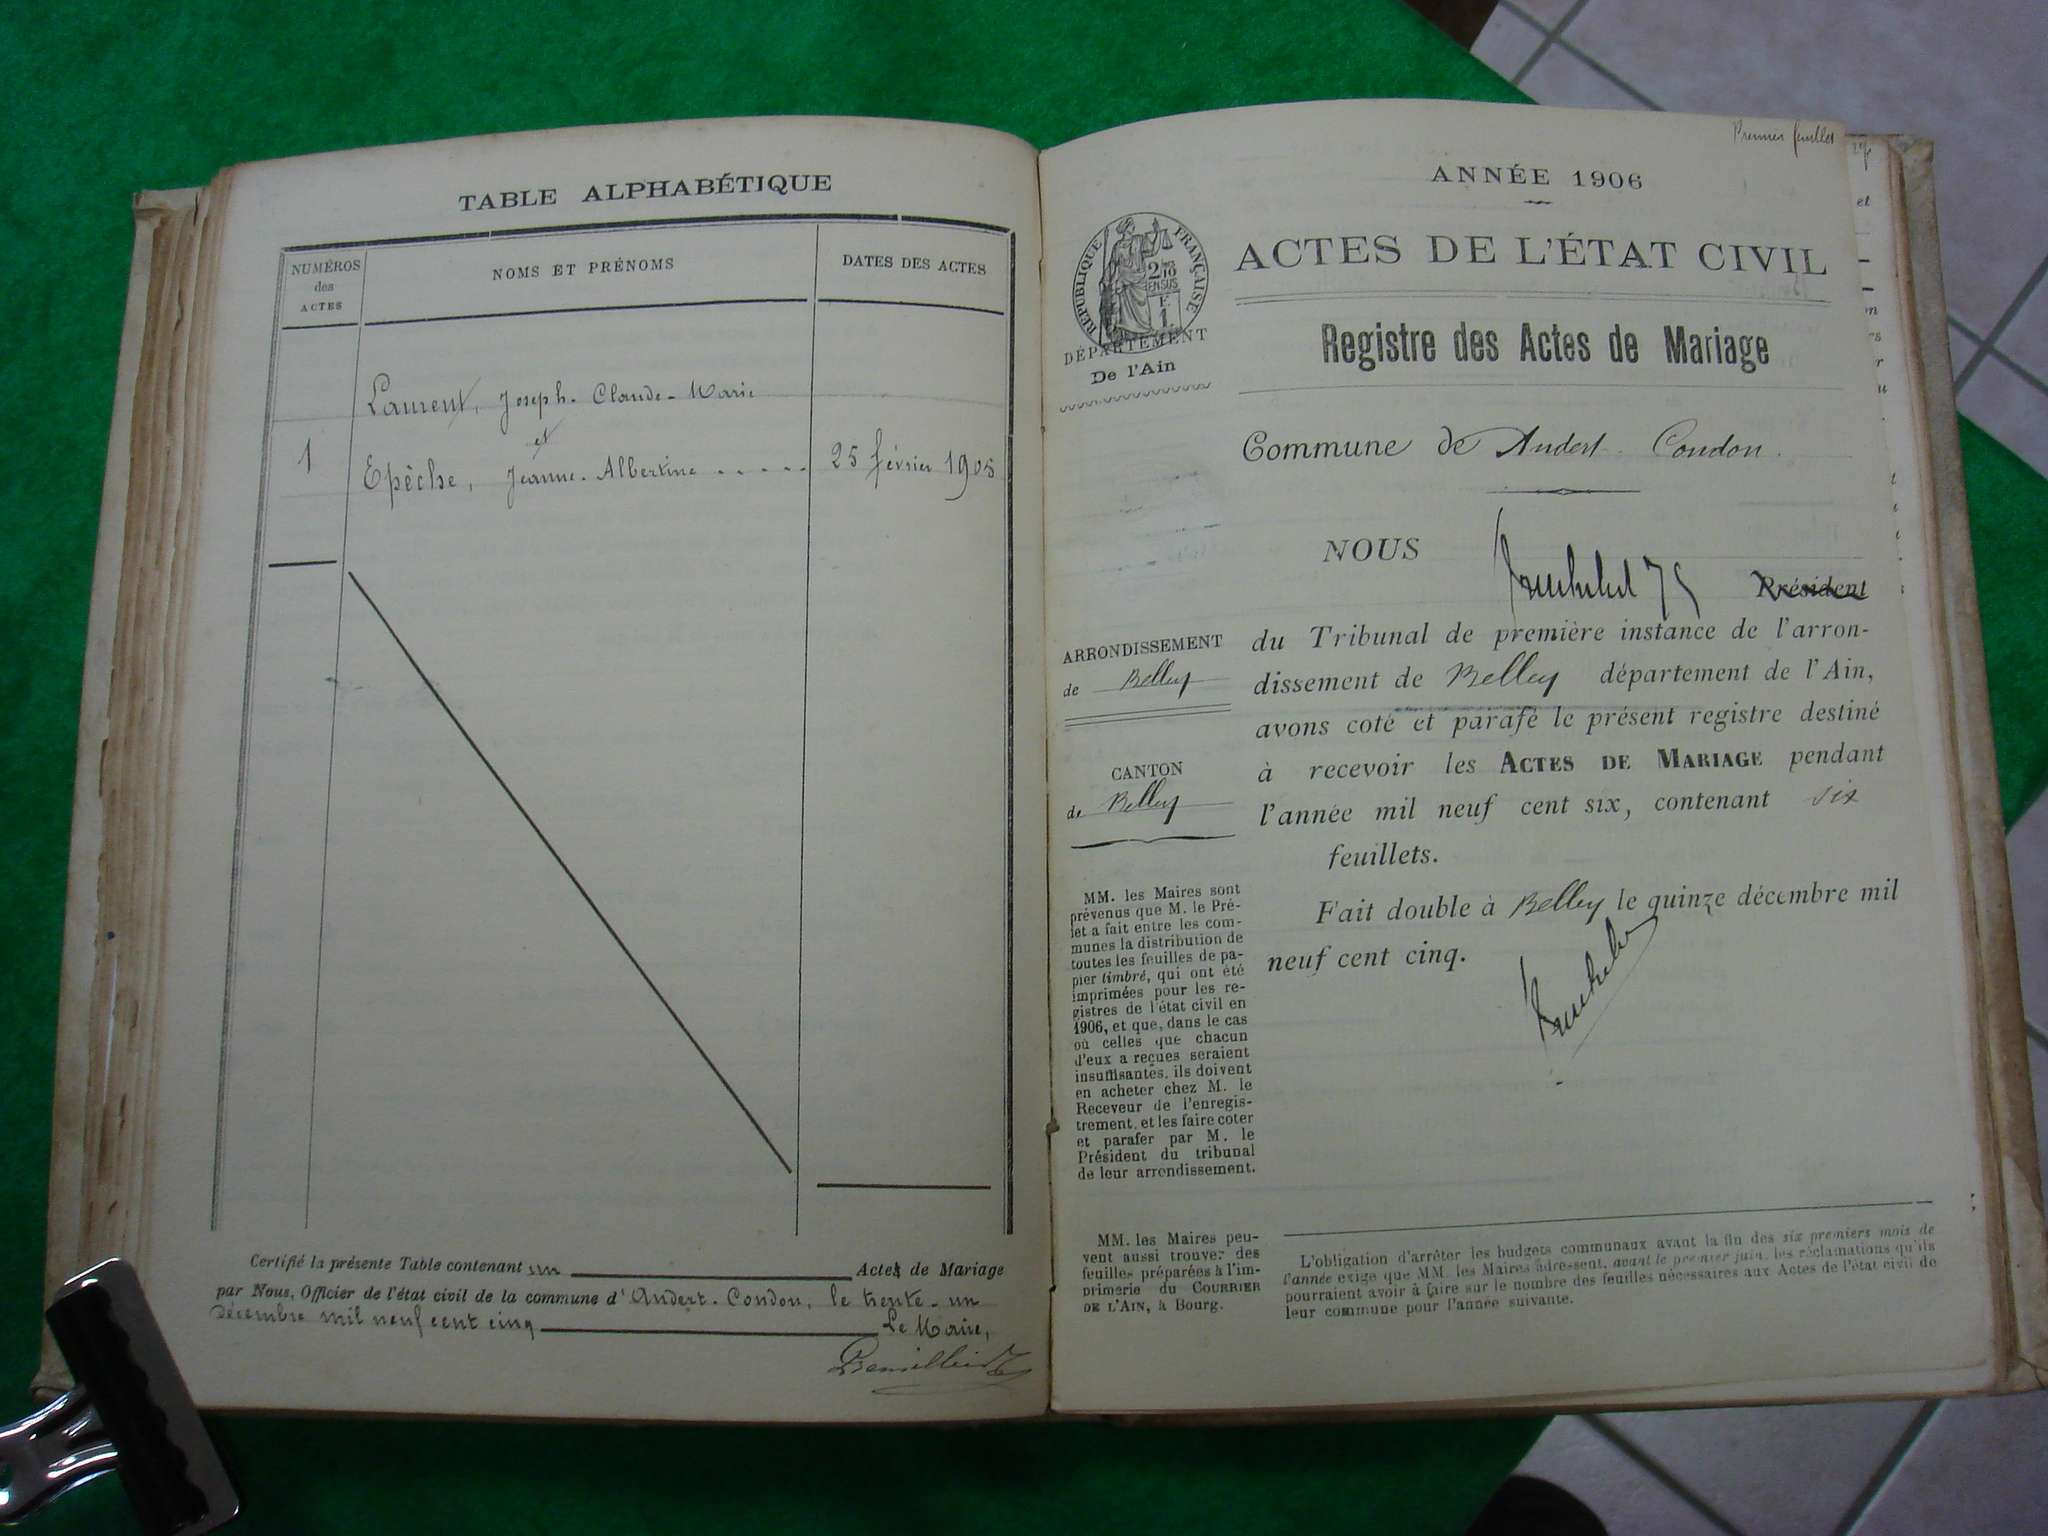 TABLE ALPHABÉTIQUE
NUMÉROS
des
ACTES
NOMS ET PRÉNOMS
DATES DES ACTES
Laurent, Joseph-Claude-Marie
et
1 Epêche, Jeanne-Albertine ..... 25 février 1905
Certifié la présente Table contenant un Actes de Mariage
par Nous, Officier de l'état civil de la commune d'Andert-Condon, le trente-un
Décembre mil neuf cent cinq
Le Maire,
Premier feuillet
ANNÉE 1906
ACTES DE L'ÉTAT CIVIL
Registre des Actes de Mariage
RÉPUBLIQUE FRANÇAISE
DÉPARTEMENT
De l'Ain
Commune de Andert-Condon.
NOUS
Président
du Tribunal de première instance de l'arron-
dissement de Belley département de l'Ain,
avons coté et parafé le présent registre destiné
à recevoir les ACTES DE MARIAGE pendant
l'année mil neuf cent six, contenant six
feuillets.
Fait double à Belley le quinze décembre mil
neuf cent cinq.
ARRONDISSEMENT
de Belley
CANTON
de Belley
MM. les Maires sont
prévenus que M. le Pré-
fet a fait entre les com-
munes la distribution de
toutes les feuilles de pa-
pier timbré, qui ont été
imprimées pour les re-
gistres de l'état civil en
1906, et que, dans le cas
où celles que chacun
d'eux a reçues seraient
insuffisantes, ils doivent
en acheter chez M. le
Receveur de l'enregis-
trement, et les faire coter
et parafer par M. le
Président du tribunal
de leur arrondissement.
MM. les Maires peu-
vent aussi trouver des
feuilles préparées à l'im-
primerie du COURRIER
DE L'AIN, à Bourg.
L'obligation d'arrêter les budgets communaux avant la fin des six premiers mois de
l'année exige que MM. les Maires adressent, avant le premier juin, les réclamations qu'ils
pourraient avoir à faire sur le nombre des feuilles nécessaires aux Actes de l'état civil de
leur commune pour l'année suivante.